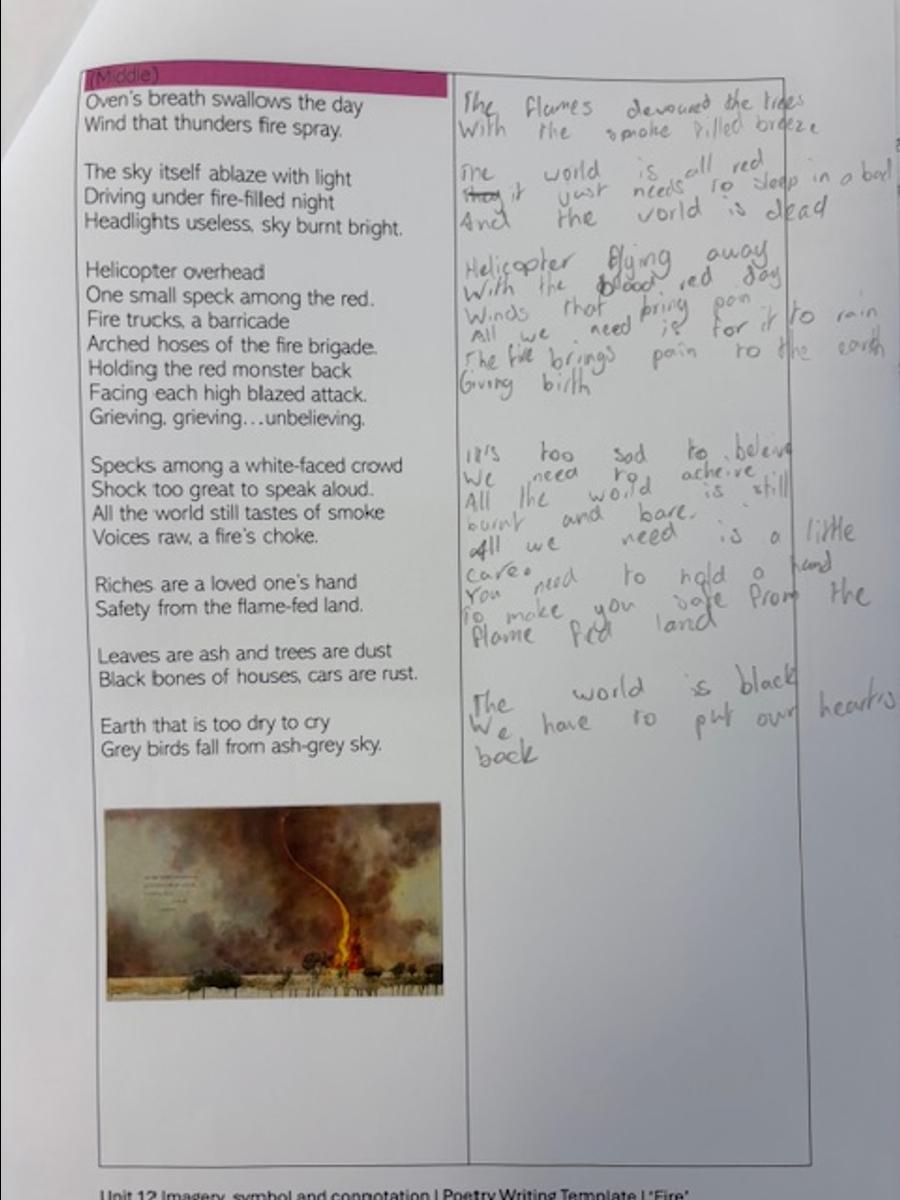 (Middle)
Oven's breath swallows the day
Wind that thunders fire spray.
The sky itself ablaze with light
Driving under fire-filled night
Headlights useless, sky burnt bright.
Helicopter overhead
One small speck among the red.
Fire trucks, a barricade
Arched hoses of the fire brigade.
Holding the red monster back
Facing each high blazed attack.
Grieving, grieving...unbelieving.
Specks among a white-faced crowd
Shock too great to speak aloud.
All the world still tastes of smoke
Voices raw, a fire's choke.
Riches are a loved one's hand
Safety from the flame-fed land.
Leaves are ash and trees are dust
Black bones of houses, cars are rust.
Earth that is too dry to cry
Grey birds fall from ash-grey sky.
The flames devoured the trees
With the smoke filled breeze
The world is all red
it just needs to sleep in a bed
And the world is dead
Helicopter flying away
With the blood red day
Winds that bring pan
All we need is for it to rain
The fire brings pain to the earth
Giving birth
It's too sad to beleive
We need to acheive
All the world is still
burnt and bare.
All we need is a little
care.
You need to hold a hand
To make you safe from the
flame fed land
The world is black
We have to put our hearts
back
Unit 12 Imagery, symbol and connotation | Poetry Writing Template | "Fire"